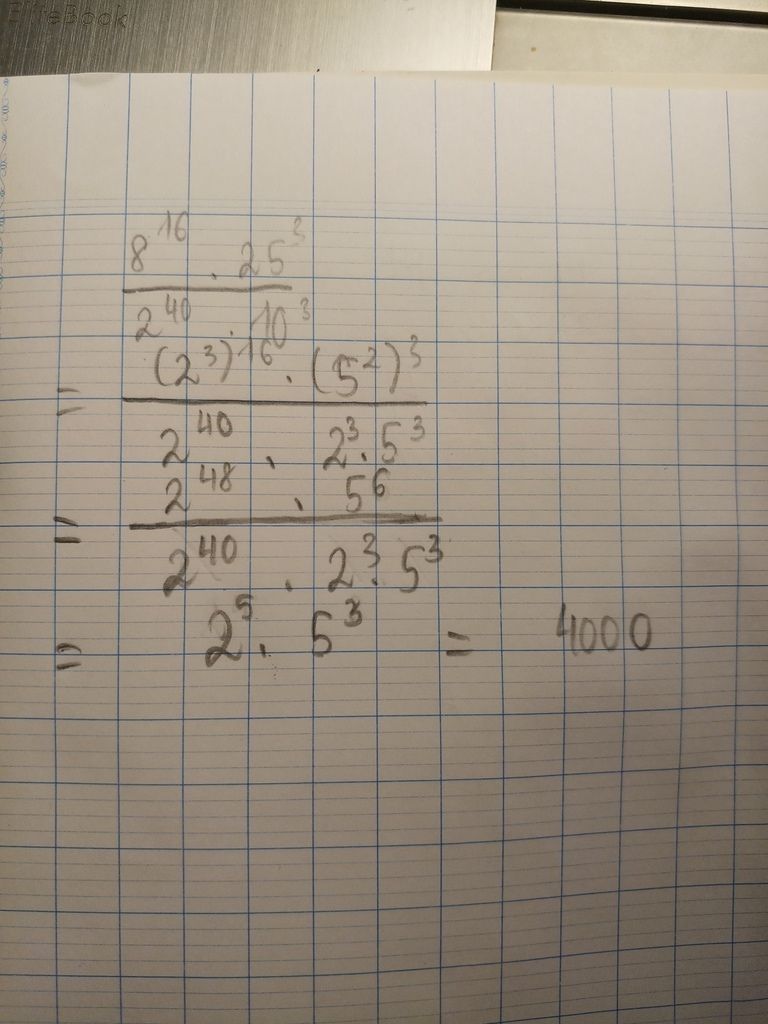 EliteBook
8^16 . 25^3
2^40 . 10^3
= (2^3)^16 . (5^2)^3
2^40 . 2^3 . 5^3
= 2^48 . 5^6
2^40 . 2^3 . 5^3
= 2^5 . 5^3 = 4000